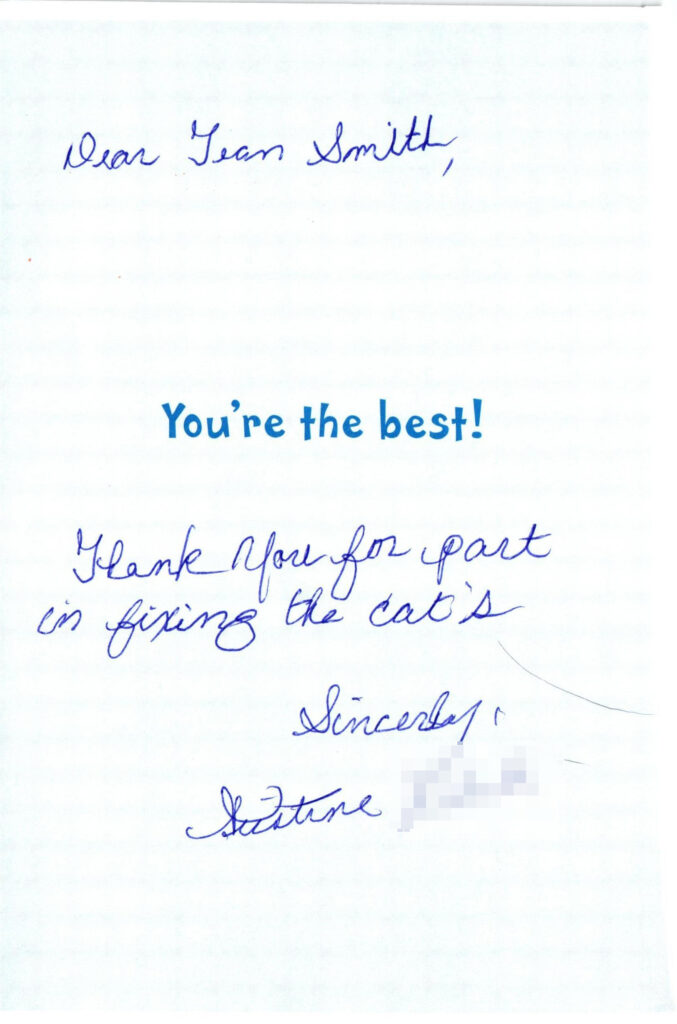 Dear Jean Smith,
You're the best!
Thank You for part
in fixing the cat's
Sincerly,